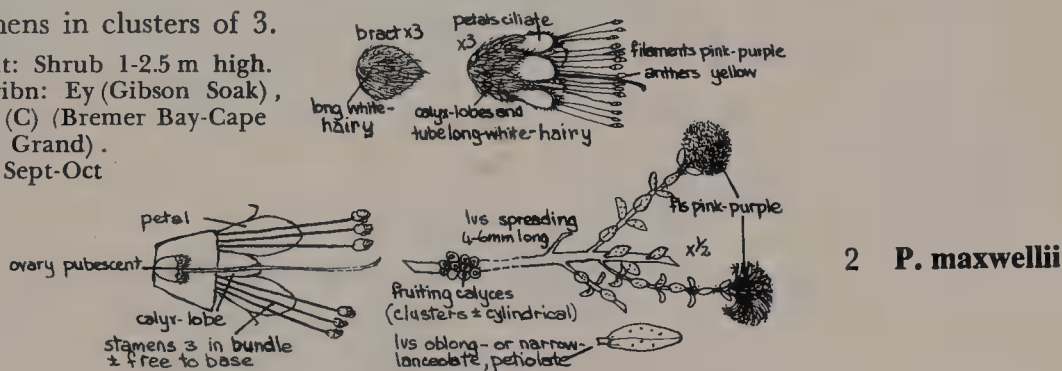 mens in clusters of 3.
t: Shrub 1-2.5 m high.
ribn: Ey (Gibson Soak),
(C) (Bremer Bay-Cape
Grand).
Sept-Oct
bract x3
long white-
hairy
petals ciliate
x3
filaments pink-purple
anthers yellow
calyx-lobes and
tube long-white-hairy
petal
ovary pubescent
calyx-lobe
stamens 3 in bundle
± free to base
lvs spreading
4-6mm long
fls pink-purple
x½
fruiting calyces
(clusters ± cylindrical)
lvs oblong- or narrow-
lanceolate, petiolate
2 P. maxwellii